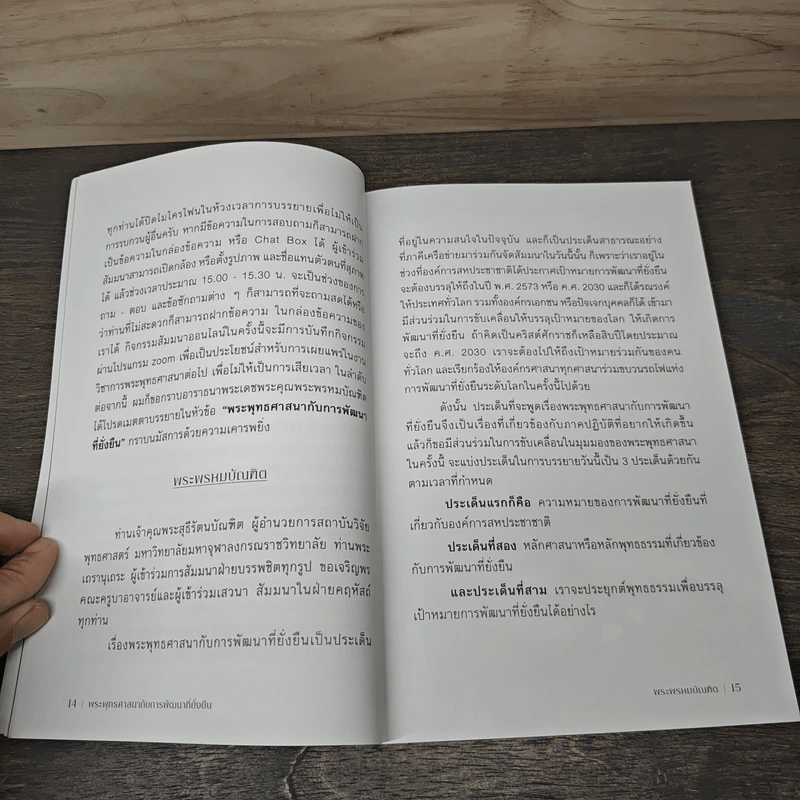 ทุกท่านได้ปิดไมโครโฟนในห้วงเวลาการบรรยายเพื่อไม่ให้เป็น
การรบกวนผู้อื่นครับ หากมีข้อความในการสอบถามก็สามารถฝาก
เป็นข้อความในกล่องข้อความ หรือ Chat Box ได้ ผู้เข้าร่วม
สัมมนาสามารถเปิดกล้อง หรือตั้งรูปภาพ และชื่อแทนตัวตนที่สุภาพ
ได้ แล้วช่วงเวลาประมาณ 15.00 - 15.30 น. จะเป็นช่วงของการ
ถาม - ตอบ และข้อซักถามต่าง ๆ ก็สามารถที่จะถามสดได้หรือ
ว่าท่านที่ไม่สะดวกก็สามารถฝากข้อความ ในกล่องข้อความของ
เราได้ กิจกรรมสัมมนาออนไลน์ในครั้งนี้จะมีการบันทึกกิจกรรม
ผ่านโปรแกรม zoom เพื่อเป็นประโยชน์สำหรับการเผยแพร่ในงาน
วิชาการพระพุทธศาสนาต่อไป เพื่อไม่ให้เป็นการเสียเวลา ในลำดับ
ต่อจากนี้ ผมก็ขอกราบอาราธนาพระเดชพระคุณพระพรหมบัณฑิต
ได้โปรดเมตตาบรรยายในหัวข้อ “พระพุทธศาสนากับการพัฒนา
ที่ยั่งยืน” กราบนมัสการด้วยความเคารพยิ่ง
พระพรหมบัณฑิต
ท่านเจ้าคุณพระสุธีรัตนบัณฑิต ผู้อำนวยการสถาบันวิจัย
พุทธศาสตร์ มหาวิทยาลัยมหาจุฬาลงกรณราชวิทยาลัย ท่านพระ
เถรานุเถระ ผู้เข้าร่วมการสัมมนาฝ่ายบรรพชิตทุกรูป ขอเจริญพร
คณะครูบาอาจารย์และผู้เข้าร่วมเสวนา สัมมนาในฝ่ายคฤหัสถ์
ทุกท่าน
เรื่องพระพุทธศาสนากับการพัฒนาที่ยั่งยืนเป็นประเด็น
14 | พระพุทธศาสนากับการพัฒนาที่ยั่งยืน
ที่อยู่ในความสนใจในปัจจุบัน และก็เป็นประเด็นสาธารณะอย่าง
ที่ภาคีเครือข่ายมาร่วมกันจัดสัมมนาในวันนี้นั้น ก็เพราะว่าเราอยู่ใน
ช่วงที่องค์การสหประชาชาติได้ประกาศเป้าหมายการพัฒนาที่ยั่งยืน
จะต้องบรรลุให้ถึงในปี พ.ศ. 2573 หรือ ค.ศ. 2030 และก็ได้รณรงค์
ให้ประเทศทั่วโลก รวมทั้งองค์กรเอกชน หรือปัจเจกบุคคลก็ได้ เข้ามา
มีส่วนร่วมในการขับเคลื่อนให้บรรลุเป้าหมายของโลก ให้เกิดการ
พัฒนาที่ยั่งยืน ถ้าคิดเป็นคริสต์ศักราชก็เหลือสิบปีโดยประมาณ
จะถึง ค.ศ. 2030 เราจะต้องไปให้ถึงเป้าหมายร่วมกันของคน
ทั่วโลก และเรียกร้องให้องค์กรศาสนาทุกศาสนาร่วมขบวนรถไฟแห่ง
การพัฒนาที่ยั่งยืนระดับโลกในครั้งนี้ไปด้วย
ดังนั้น ประเด็นที่จะพูดเรื่องพระพุทธศาสนากับการพัฒนา
ที่ยั่งยืนจึงเป็นเรื่องที่เกี่ยวข้องกับภาคปฏิบัติที่อยากให้เกิดขึ้น
แล้วก็ขอมีส่วนร่วมในการขับเคลื่อนในมุมมองของพระพุทธศาสนา
ในครั้งนี้ จะแบ่งประเด็นในการบรรยายวันนี้เป็น 3 ประเด็นด้วยกัน
ตามเวลาที่กำหนด
ประเด็นแรกก็คือ ความหมายของการพัฒนาที่ยั่งยืนที่
เกี่ยวกับองค์การสหประชาชาติ
ประเด็นที่สอง หลักศาสนาหรือหลักพุทธธรรมที่เกี่ยวข้อง
กับการพัฒนาที่ยั่งยืน
และประเด็นที่สาม เราจะประยุกต์พุทธธรรมเพื่อบรรลุ
เป้าหมายการพัฒนาที่ยั่งยืนได้อย่างไร
พระพรหมบัณฑิต | 15